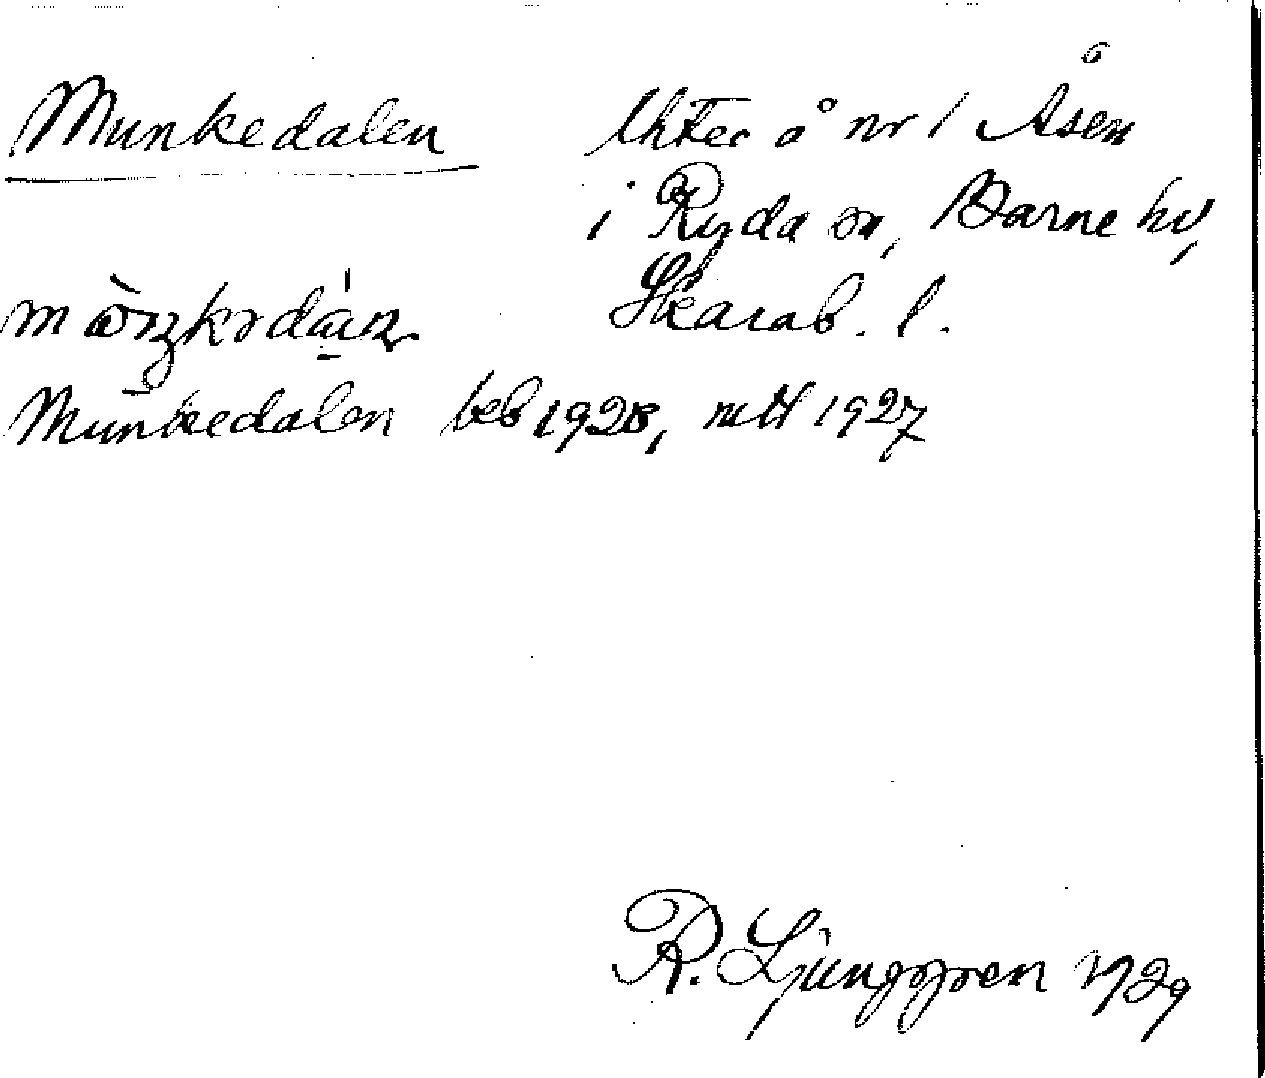 Munkedalen
under å nr 1 Åsen
i Ryda sn, Barne hd,
Skarab. l.
Munkedalen beb 1928, mtl 1927
R. Ljunggren 1929